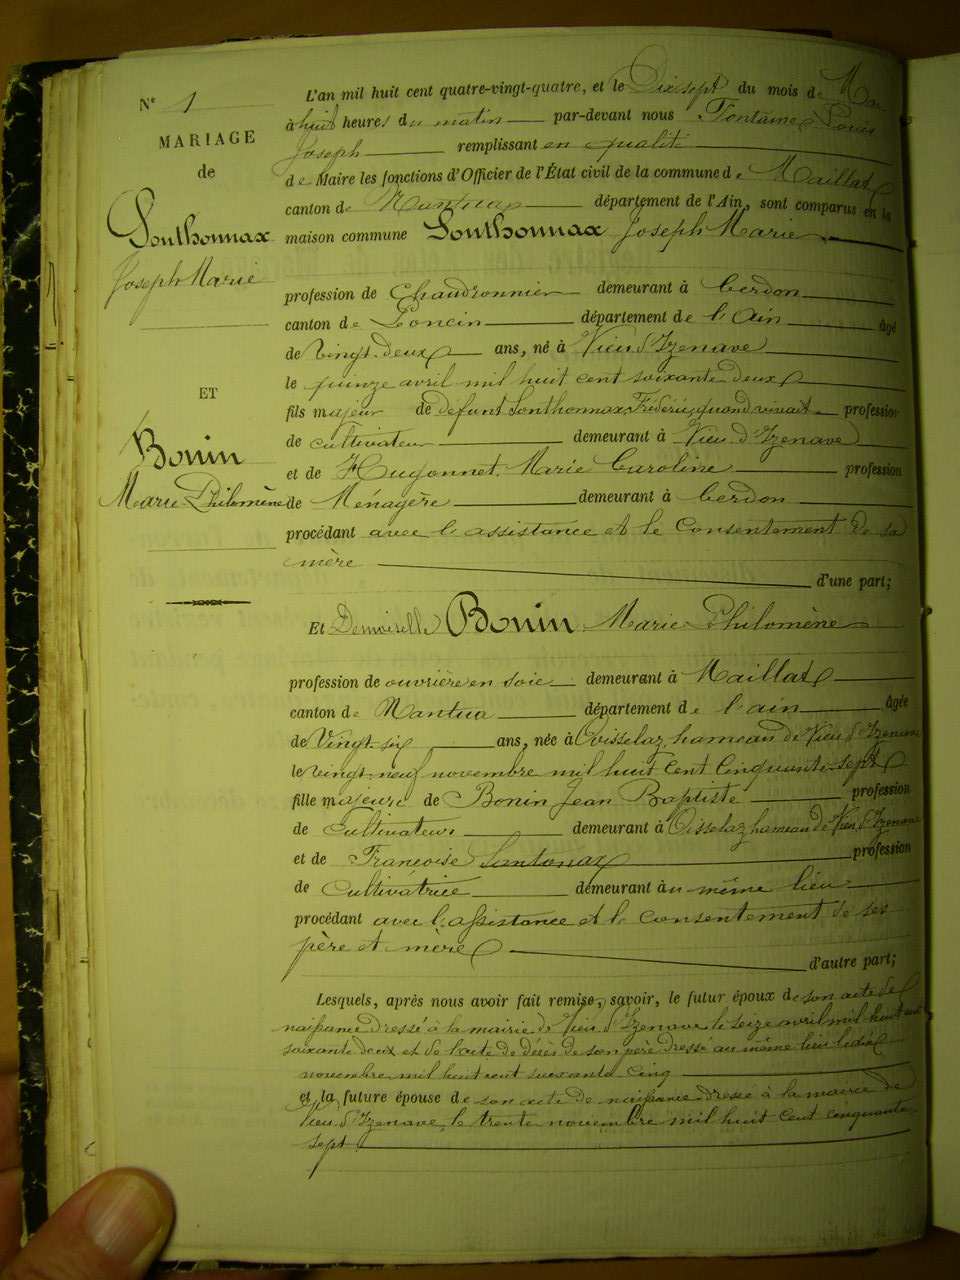 N° 1
MARIAGE
de
Sonthonnax
Joseph Marie
ET
Bonin
Marie Philomène
L'an mil huit cent quatre-vingt-quatre, et le Dix sept du mois de Mai
à huit heures du matin par-devant nous Fontaine Louis
Joseph remplissant en qualité
de Maire les fonctions d'Officier de l'État civil de la commune de Maillat
canton de Nantua département de l'Ain, sont comparus en la
maison commune Sonthonnax Joseph Marie
profession de Chaudronnier demeurant à Cerdon
canton de Poncin département de l'Ain âgé
de Vingt-deux ans, né à Vieu d'Izenave
le quinze avril mil huit cent soixante deux
fils majeur de défunt Sonthonnax Frédéric, quand vivait profession
de cultivateur demeurant à Vieu d'Izenave
et de Hugonnet Marie Caroline profession
de Ménagère demeurant à Cerdon
procédant avec l'assistance et le consentement de sa
mère d'une part;
Et Demoiselle Bonin Marie Philomène
profession de ouvrière en soie demeurant à Maillat
canton de Nantua département de l'ain âgée
de Vingt-six ans, née à Oisselaz, hameau de Vieu d'Izenave
le vingt-neuf novembre mil huit cent cinquante-sept
fille majeure de Bonin Jean Baptiste profession
de Cultivateur demeurant à Oisselaz hameau de Vieu d'Izenave
et de Françoise Santonax profession
de Cultivatrice demeurant au même lieu
procédant avec l'assistance et le consentement de ses
père et mère d'autre part;
Lesquels, après nous avoir fait remise, savoir, le futur époux de son acte de
naissance dressé à la mairie de Vieu d'Izenave le seize avril mil huit cent
soixante deux et de l'acte de décès de son père dressé au même lieu le dix
novembre mil huit cent soixante cinq
et la future épouse de son acte de naissance dressé à la mairie de
Vieu d'Izenave, le trente novembre mil huit cent cinquante
sept